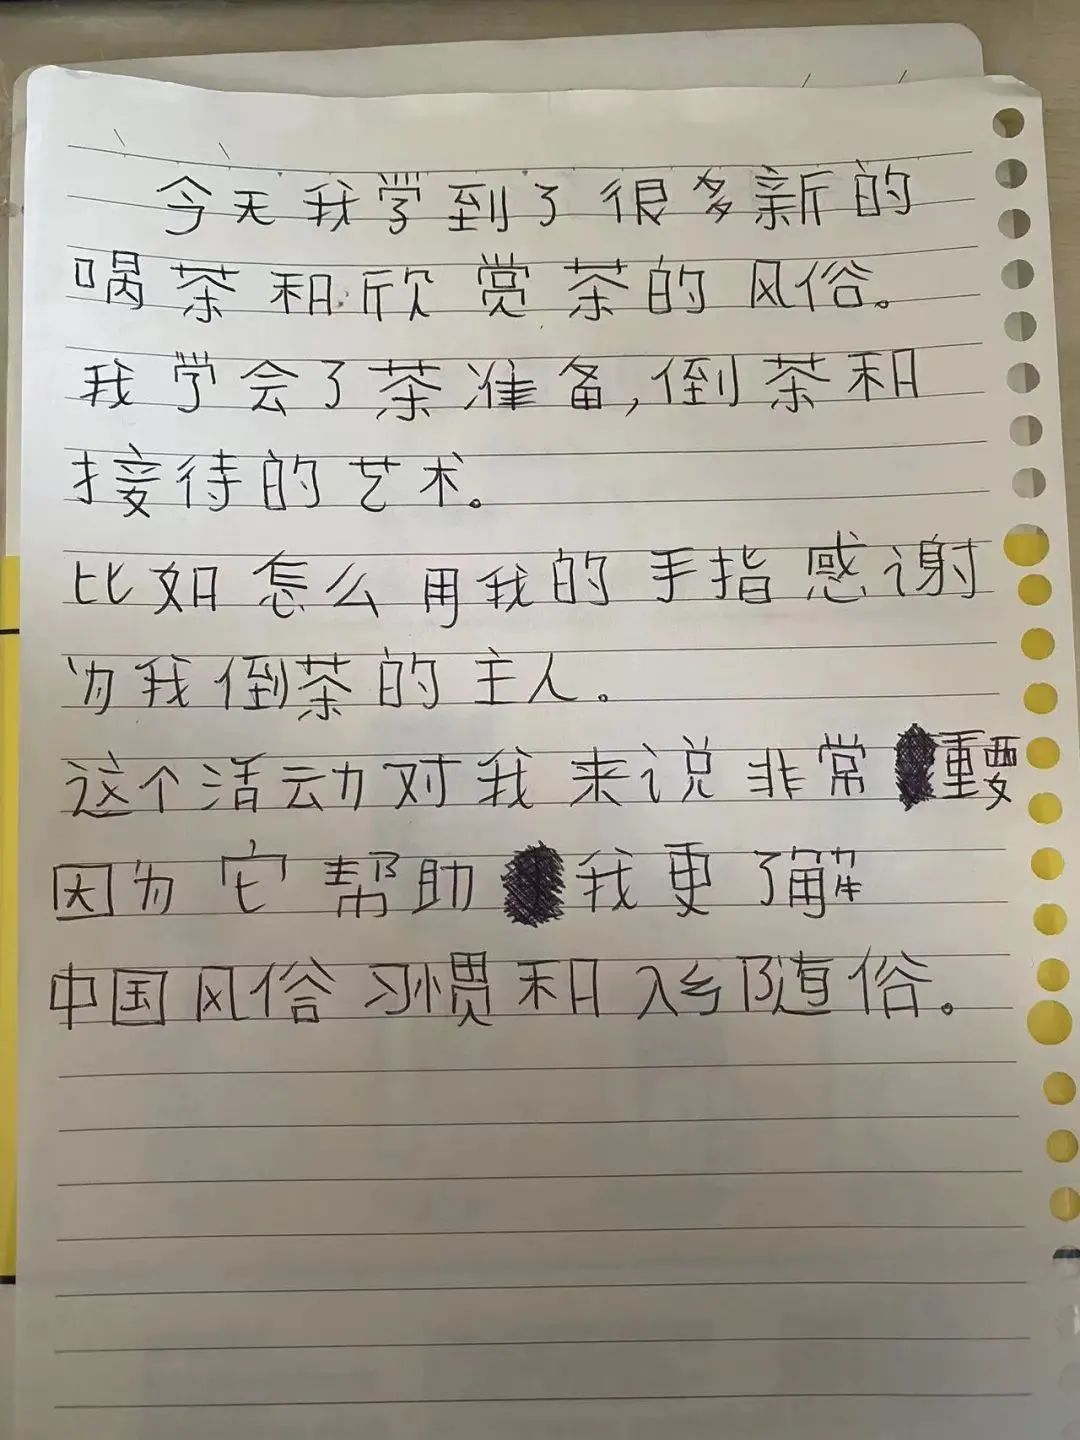 今天我学到了很多新的
喝茶和欣赏茶的风俗。
我学会了茶准备,倒茶和
接待的艺术。
比如怎么用我的手指感谢
为我倒茶的主人。
这个活动对我来说非常重要
因为它帮助我更了解
中国风俗习惯和入乡随俗。